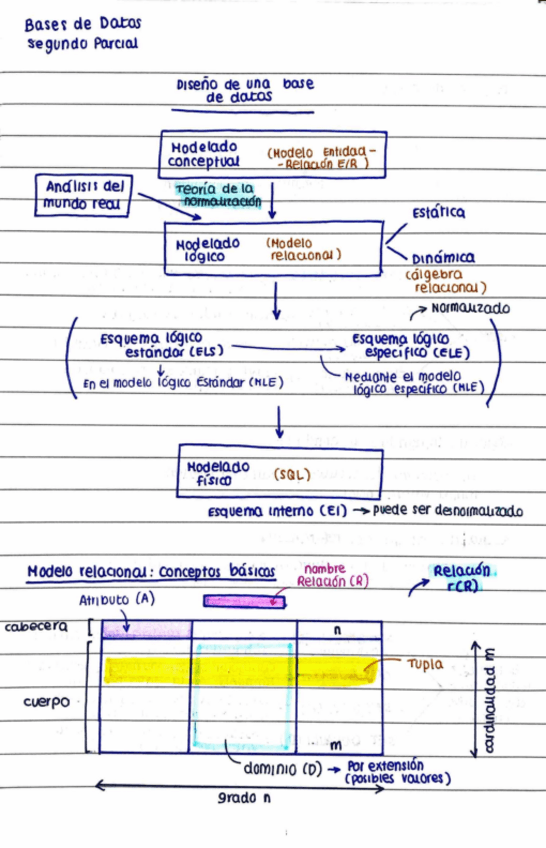 Bases de Datos
Segundo Parcial
Diseño de una base
de datos
Modelado
conceptual
(Modelo Entidad-
-Relación E/R)
Análisis del
mundo real
Teoría de la
normalización
Modelado
lógico
(Modelo
relacional)
Estática
Dinámica
(álgebra
relacional)
Normalizado
Esquema lógico
estándar (ELS)
Esquema lógico
específico (ELE)
En el modelo lógico Estándar (MLE)
Mediante el modelo
lógico específico (MLE)
Modelado
físico
(SQL)
Esquema interno (EI) → puede ser desnormalizado
Modelo relacional: conceptos básicos
nombre
Relación (R)
Relación
r(R)
Atributo (A)
cabecera
n
Tupla
cuerpo
cardinalidad m
m
dominio (D) → Por extensión
(posibles valores)
grado n